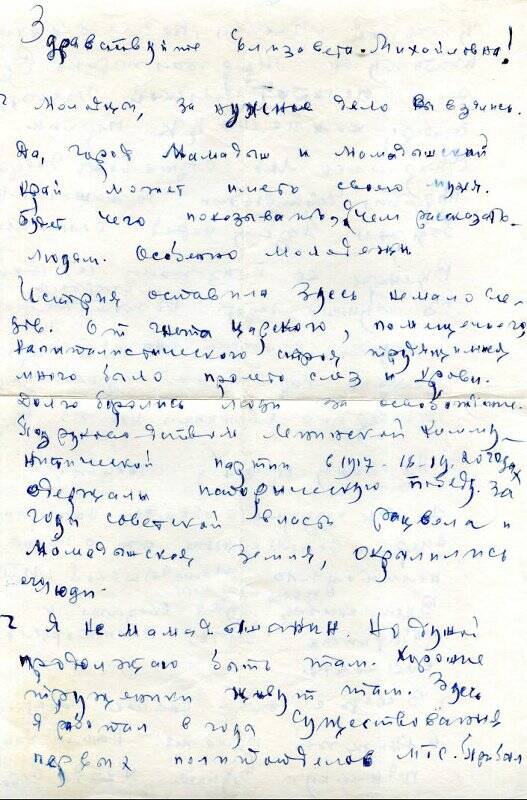 Здравствуйте Елизавета Михайловна!
Молодцы, за нужное дело Вы взялись.
Да, город Мамадыш и Мамадышский
край может иметь своего музея.
будет чего показывать, о чем рассказать
людям. Особенно молодежи
История оставила здесь немало сле-
дов. От гнета царского, помещичьего
капиталистического строя трудящимися
много было пролито слез и крови.
Долго боролись люди за освобождение.
Под руководством Ленинской Комму-
нистической партии в 1917-18-19. 20 годах
одержали победу. За
годы советской власть расцвела и
Мамадышская земля,
люди.
Я не мамадышанин. Но душой
продолжаю быть там. Хорошие
труженики живут там. Здесь
Я работал в года существования
первых политотделов МТС. Прибыл